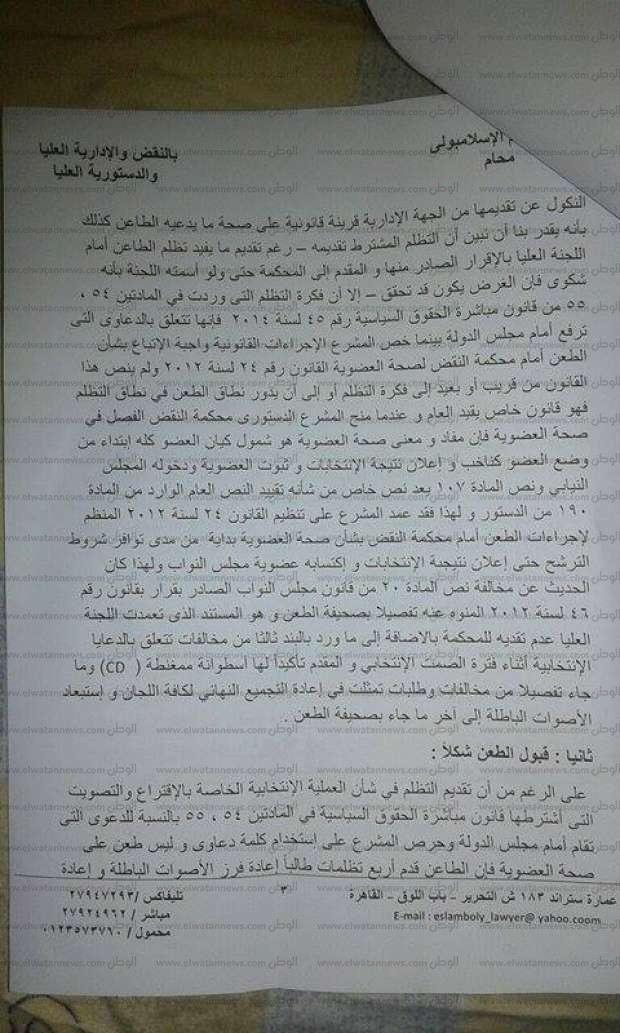 م الإسلامبولى
محام
بالنقض والإدارية العليا
والدستورية العليا
النكول عن تقديمها من الجهة الإدارية قرينة قانونية على صحة ما يدعيه الطاعن كذلك
بأنه يقدر بنا أن نبين أن التظلم المشترط تقديمه – رغم تقديم ما يفيد تظلم الطاعن أمام
اللجنة العليا بالإقرار الصادر منها و المقدم إلى المحكمة حتى ولو أسمته اللجنة بأنه
شكوى فإن الغرض يكون قد تحقق – إلا أن فكرة التظلم التى وردت في المادتين ٥٤ ،
٥٥ من قانون مباشرة الحقوق السياسية رقم ٤٥ لسنة ٢٠١٤ فإنها تتعلق بالدعاوى التى
ترفع أمام مجلس الدولة بينما خص المشرع الإجراءات القانونية واجبة الإتباع بشأن
الطعن أمام محكمة النقض لصحة العضوية القانون رقم ٢٤ لسنة ٢٠١٢ ولم ينص هذا
القانون من قريب أو بعيد إلى فكرة التظلم أو إلى أن يدور نطاق الطعن في نطاق التظلم
فهو قانون خاص يقيد العام و عندما منح المشرع الدستورى محكمة النقض الفصل في
صحة العضوية فإن مفاد و معنى صحة العضوية هو شمول كيان العضو كله ابتداء من
وضع العضو كناخب و إعلان نتيجة الإنتخابات و ثبوت العضوية ودخوله المجلس
النيابي ونص المادة ١٠٧ يعد نص خاص من شأنه تقييد النص العام الوارد من المادة
١٩٠ من الدستور و لهذا فقد عمد المشرع على تنظيم القانون ٢٤ لسنة ٢٠١٢ المنظم
لإجراءات الطعن أمام محكمة النقض بشأن صحة العضوية بداية من مدى توافر شروط
الترشح حتى إعلان نتيجة الإنتخابات و إكتسابه عضوية مجلس النواب ولهذا كان
الحديث عن مخالفة نص المادة ٢٠ من قانون مجلس النواب الصادر بقرار بقانون رقم
٤٦ لسنة ٢٠١٢ المنوه عنه تفصيلا بصحيفة الطعن و هو المستند الذى تعمدت اللجنة
العليا عدم تقديه للمحكمة بالاضافة إلى ما ورد بالبند ثالثا من مخالفات تتعلق بالدعايا
الإنتخابية أثناء فترة الصمت الإنتخابي و المقدم تأكيداً لها أسطوانة ممغنطة ( CD) وما
جاء تفصيلا من مخالفات وطلبات تمثلت في إعادة التجميع النهائي لكافة اللجان و إستبعاد
الأصوات الباطلة إلى آخر ما جاء بصحيفة الطعن .
ثانيا : قبول الطعن شكلا :
على الرغم من أن تقديم التظلم في شأن العملية الإنتخابية الخاصة بالإقتراع والتصويت
التى أشترطها قانون مباشرة الحقوق السياسية في المادتين ٥٤ ، ٥٥ بالنسبة للدعوى التى
تقام أمام مجلس الدولة وحرص المشرع على إستخدام كلمة دعاوى و ليس طعن على
صحة العضوية فإن الطاعن قدم أربع تظلمات طالباً إعادة فرز الأصوات الباطلة و إعادة
٣
عمارة ستراند ١٨٣ ش التحرير – باب اللوق – القاهرة
E-mail : eslamboly_lawyer@ yahoo.coom
تليفاكس /٢٧٩٤٧٢٩٣
مباشر / ٢٧٩٢٤٩٦٢
محمول /٠١٢٣٥٧٣٧٦٠